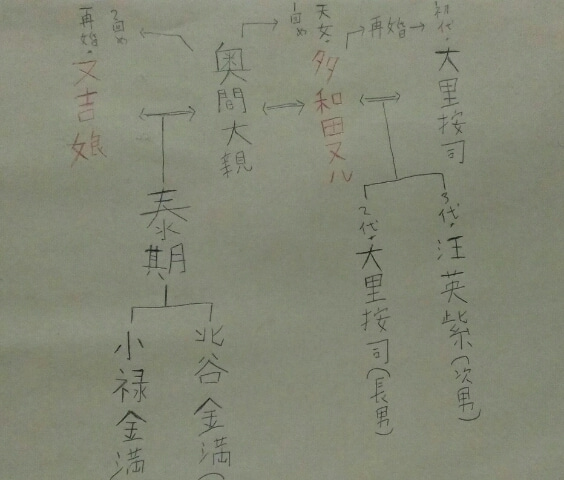 初代・大里按司
再婚
天女・多和田ヌル
1回め
奥間大親
2回め
再婚・又吉娘
3代・汪英紫(次男)
2代・大里按司(長男)
泰期
北谷金満(
小禄金満